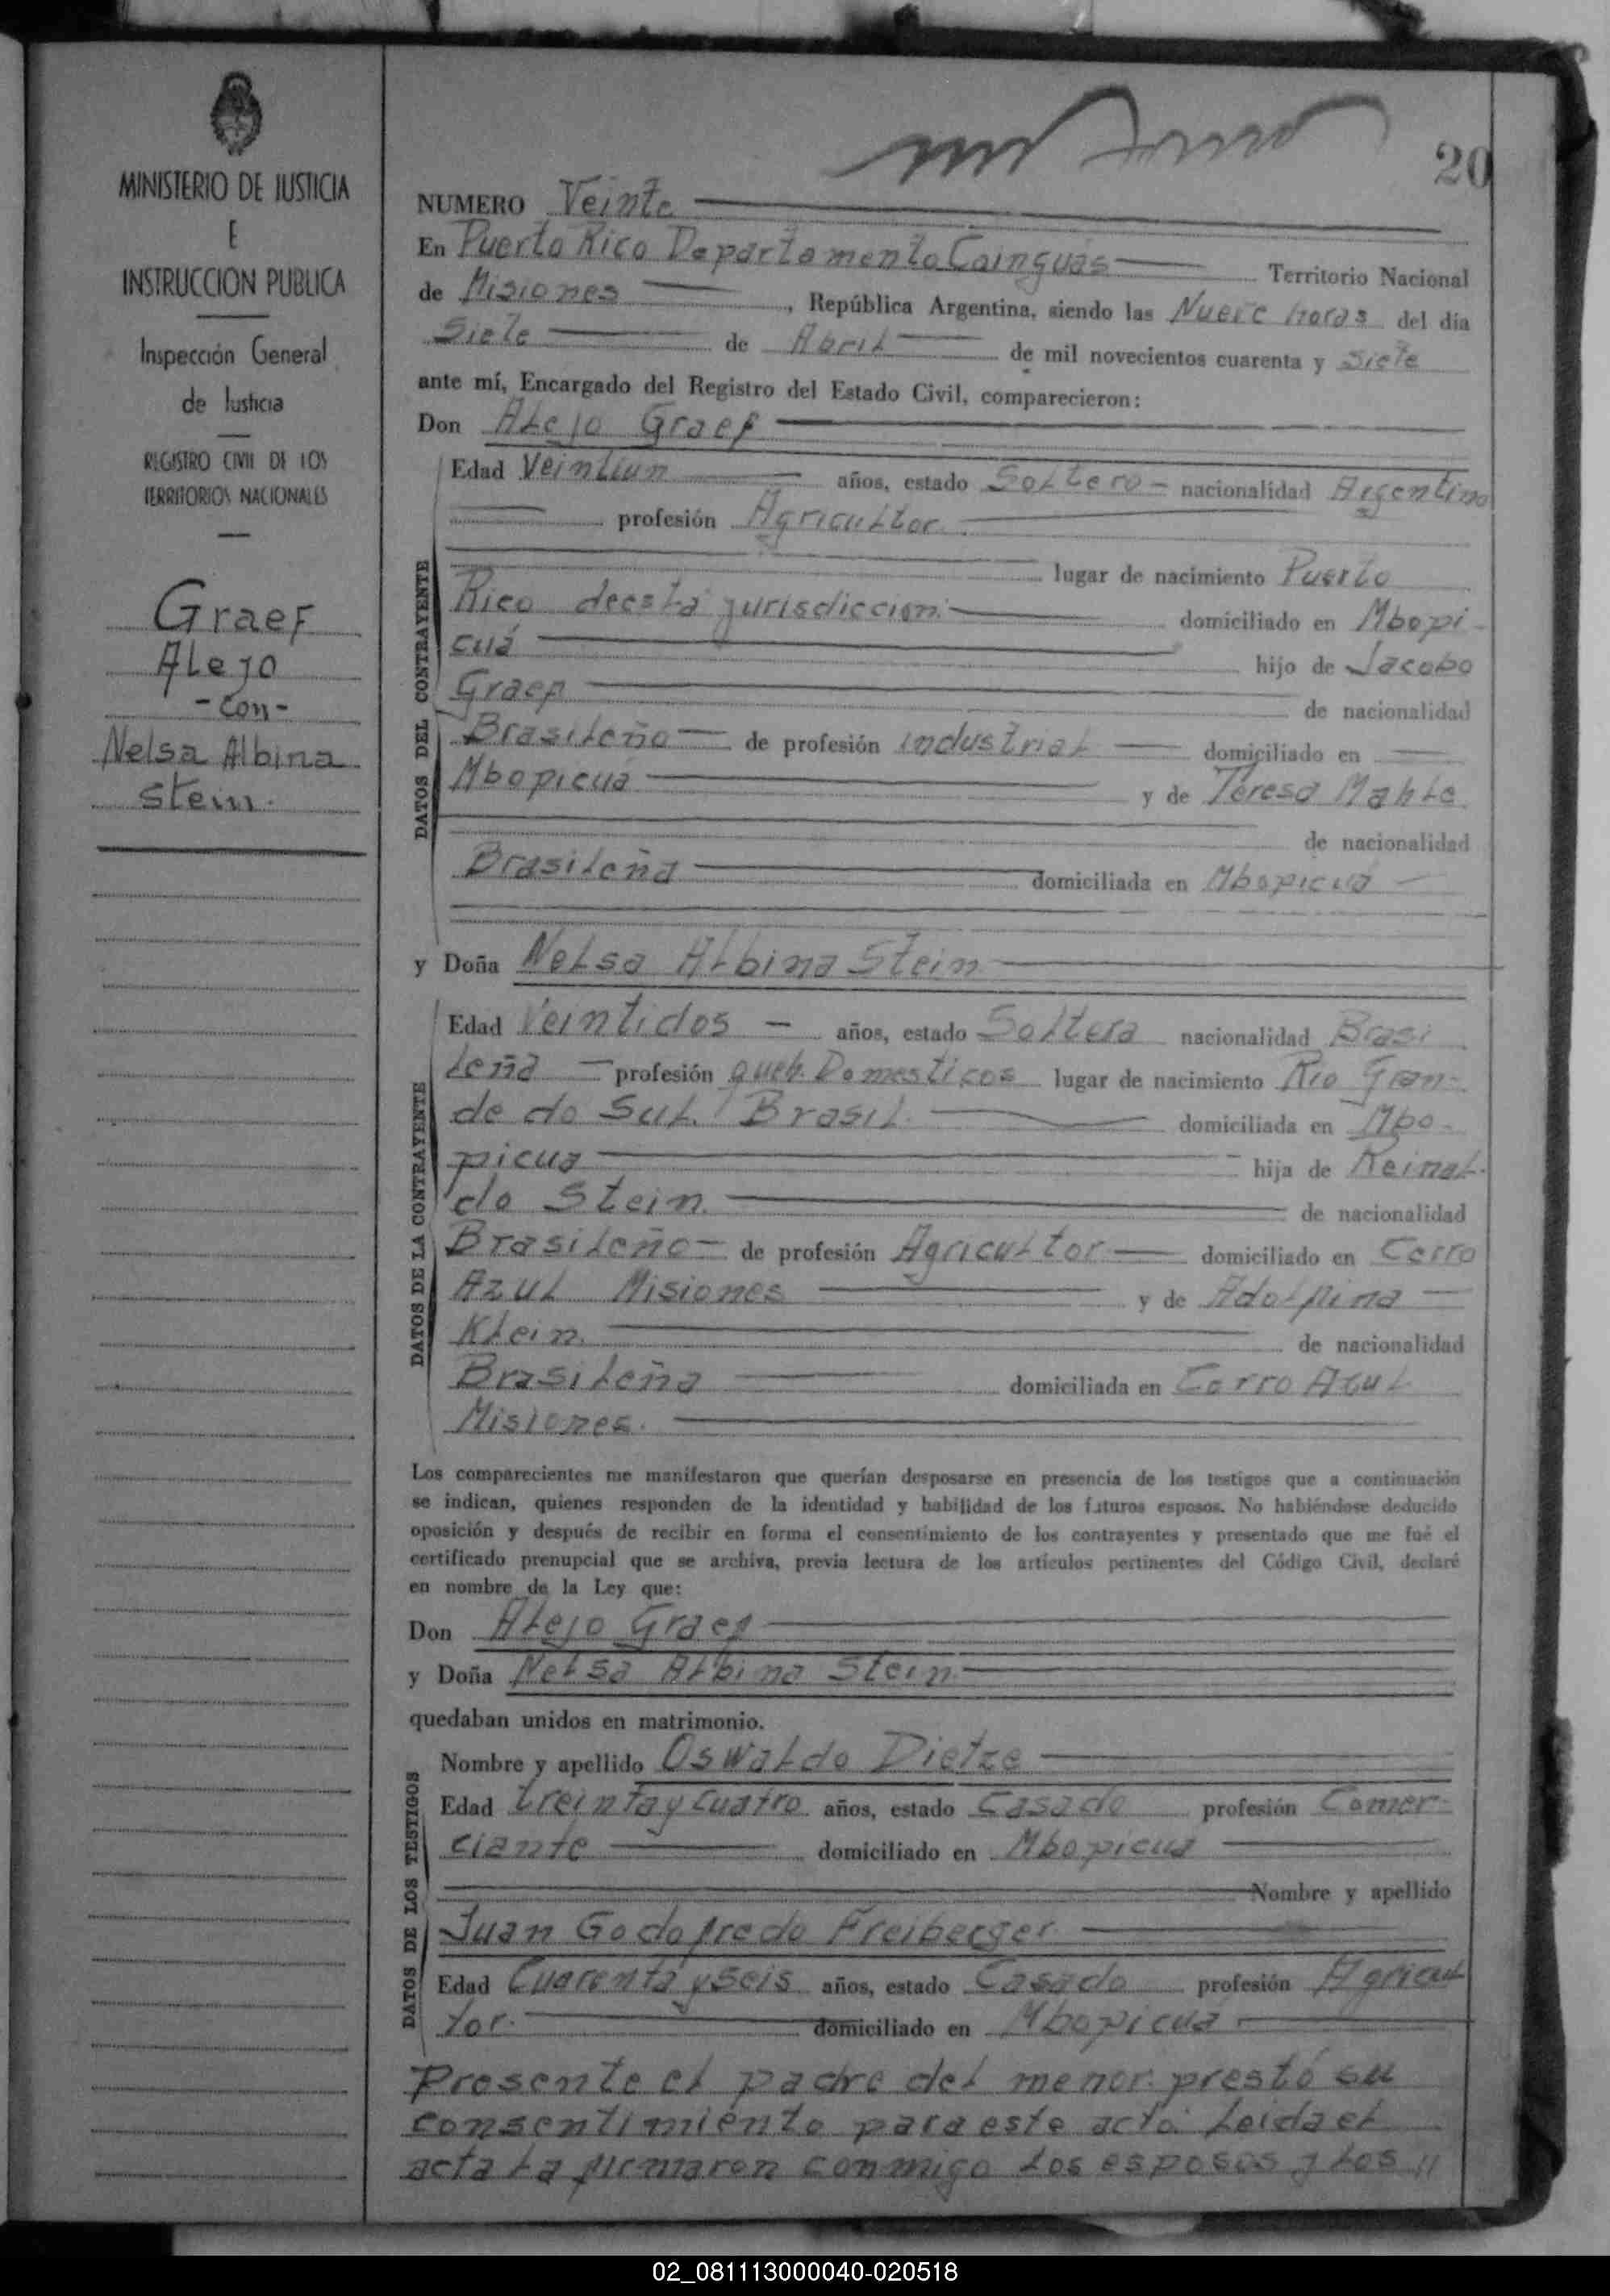 MINISTERIO DE JUSTICIA
E
INSTRUCCION PUBLICA
Inspección General
de Justicia
REGISTRO CIVIL DE LOS
TERRITORIOS NACIONALES
Graef
Alejo
- con -
Nelsa Albina
Stein.
20
NUMERO Veinte
En Puerto Rico Departamento Cainguás Territorio Nacional
de Misiones , República Argentina, siendo las Nueve horas del día
Siete de Abril de mil novecientos cuarenta y siete
ante mí, Encargado del Registro del Estado Civil, comparecieron:
Don Alejo Graef
DATOS DEL CONTRAYENTE
Edad Veintiun años, estado Soltero - nacionalidad Argentino
profesión Agricultor
lugar de nacimiento Puerto
Rico deesta jurisdiccion. domiciliado en Mbopi-
cuá hijo de Jacobo
Graef de nacionalidad
Brasileño de profesión industrial domiciliado en
Mbopicuá y de Teresa Mahle
de nacionalidad
Brasileña domiciliada en Mbopicuá
y Doña Nelsa Albina Stein
DATOS DE LA CONTRAYENTE
Edad Veintidos - años, estado Soltera nacionalidad Brasi
leña profesión queh. Domesticos lugar de nacimiento Rio Gran-
de do Sul. Brasil. domiciliada en Mbo-
picua hija de Reinal-
do Stein. de nacionalidad
Brasileño - de profesión Agricultor domiciliado en Cerro
Azul Misiones y de Adolfina
Klein. de nacionalidad
Brasileña domiciliada en Cerro Azul
Misiones.
Los comparecientes me manifestaron que querían desposarse en presencia de los testigos que a continuación
se indican, quienes responden de la identidad y habilidad de los futuros esposos. No habiéndose deducido
oposición y después de recibir en forma el consentimiento de los contrayentes y presentado que me fué el
certificado prenupcial que se archiva, previa lectura de los artículos pertinentes del Código Civil, declaré
en nombre de la Ley que:
Don Alejo Graef
y Doña Nelsa Albina Stein.
quedaban unidos en matrimonio.
DATOS DE LOS TESTIGOS
Nombre y apellido Oswaldo Dietze
Edad treinta y cuatro años, estado Casado profesión Comer-
ciante domiciliado en Mbopicua
Nombre y apellido
Juan Godofredo Freiberger
Edad Cuarenta y seis años, estado Casado profesión Agricul
tor. domiciliado en Mbopicuá
Presente el padre del menor. prestó su
consentimiento para este acto. Leida el
acta la firmaron conmigo los esposos y los "
02_081113000040-020518